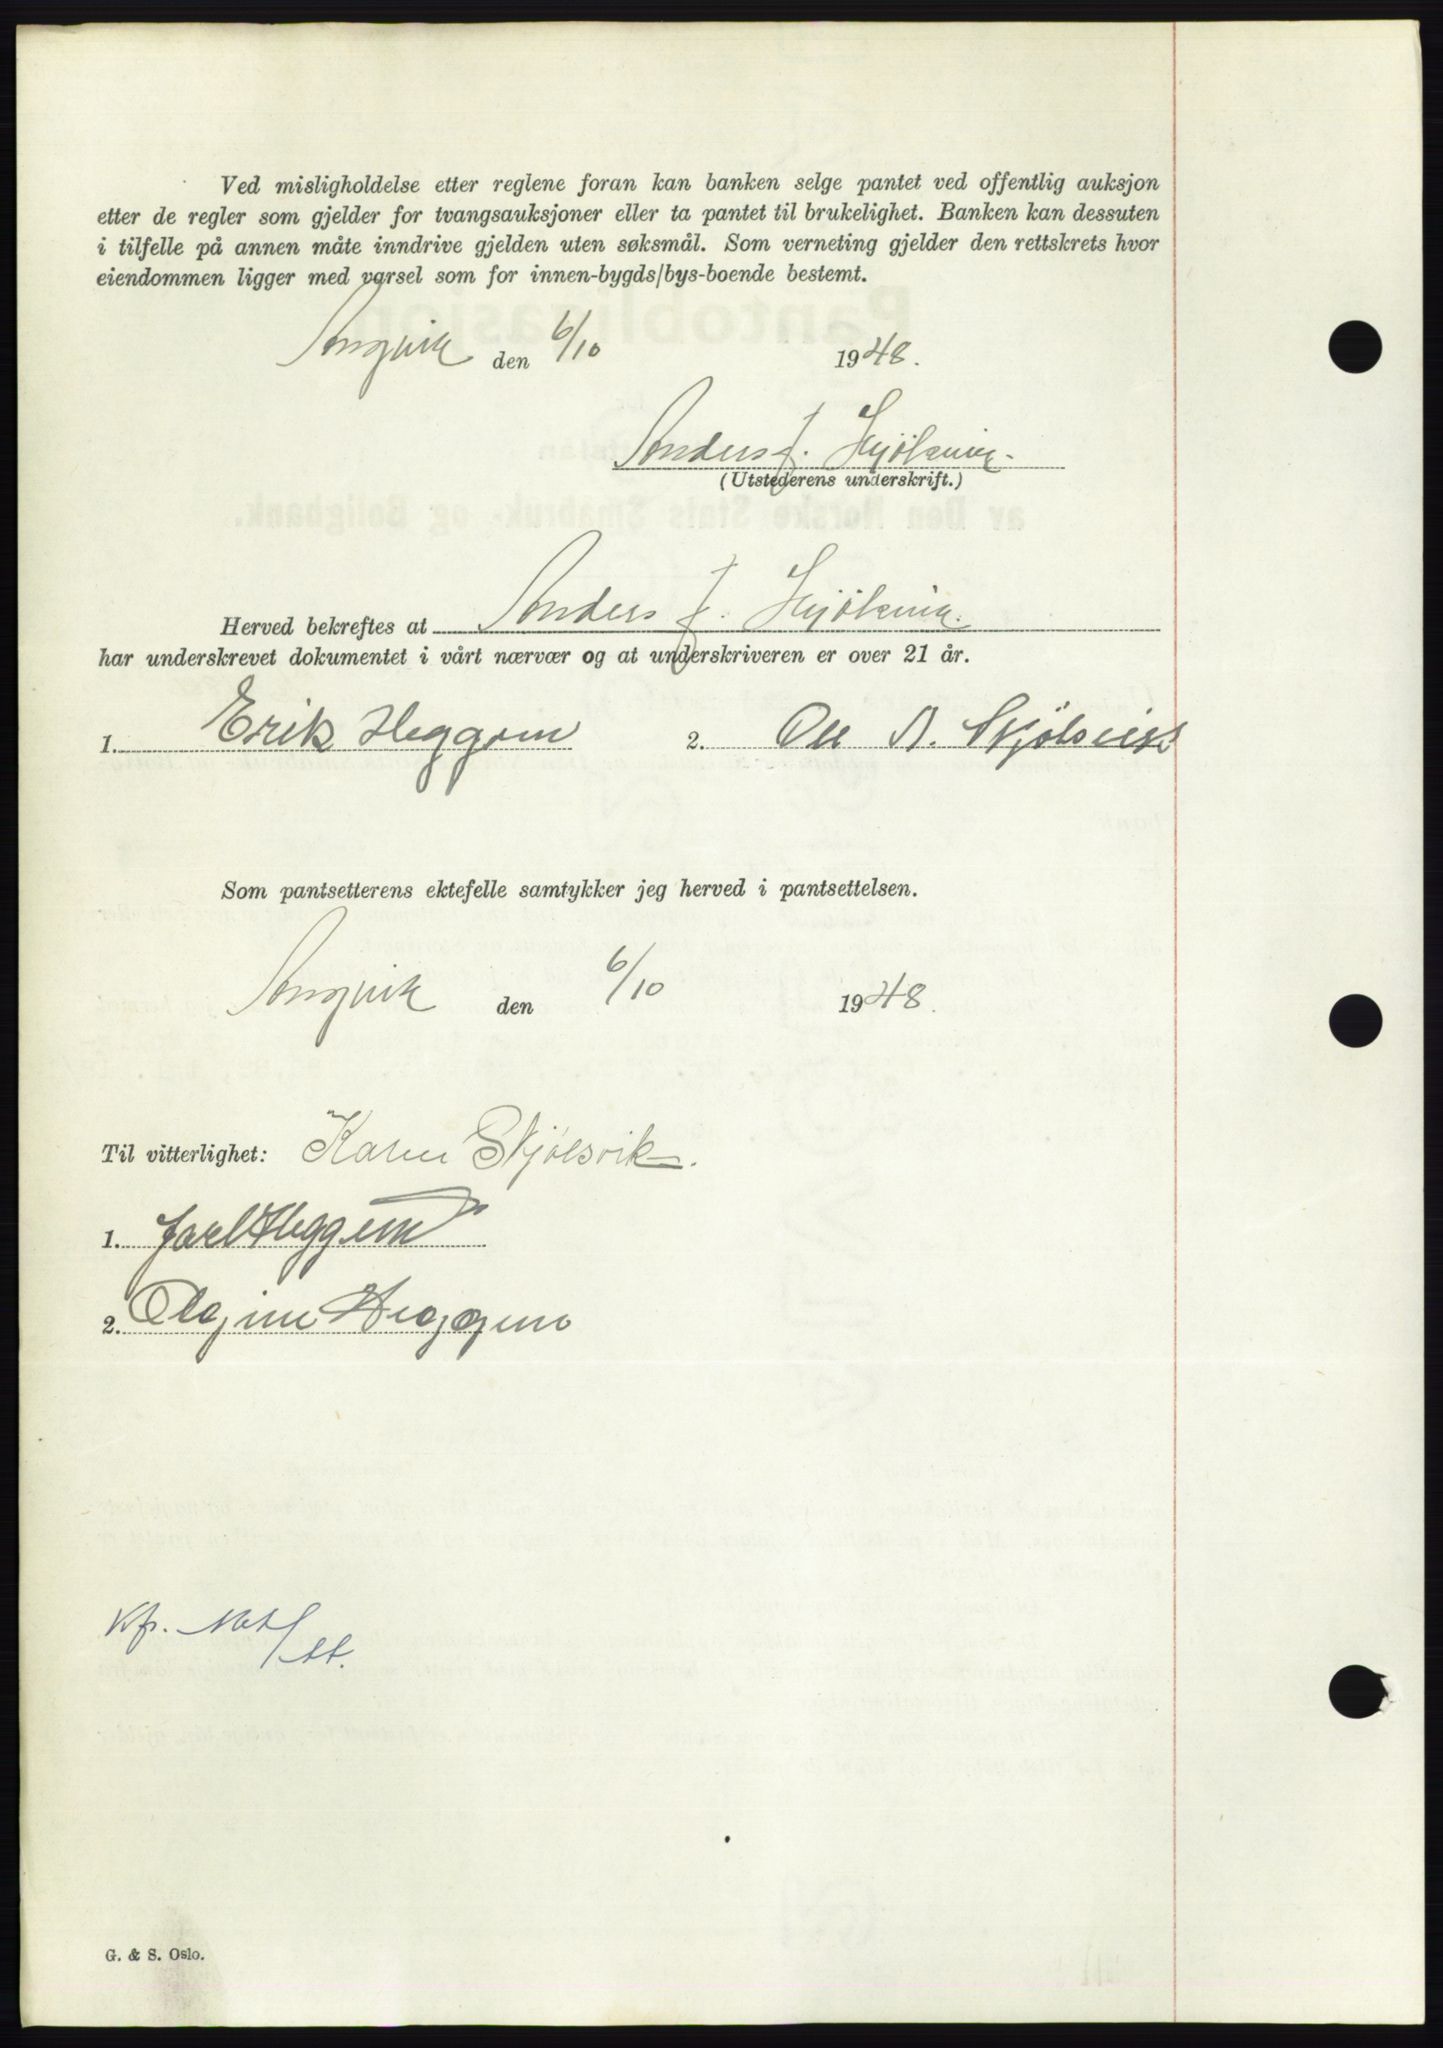 Ved misligholdelse etter reglene foran kan banken selge pantet ved offentlig auksjon
etter de regler som gjelder for tvangsauksjoner eller ta pantet til brukelighet. Banken kan dessuten
i tilfelle på annen måte inndrive gjelden uten søksmål. Som verneting gjelder den rettskrets hvor
eiendommen ligger med varsel som for innen-bygds/bys-boende bestemt.
Angvik den 6/10 1948.
Anders J. Skjölsvik.
(Utstederens underskrift.)
Herved bekreftes at Anders J. Skjölsvik.
har underskrevet dokumentet i vårt nærvær og at underskriveren er over 21 år.
1. Erik Heggem 2. Ole A. Skjölsvik
Som pantsetterens ektefelle samtykker jeg herved i pantsettelsen.
Angvik den 6/10 1948.
Til vitterlighet: Karen Skjölsvik.
1. Jarl Heggem
2. Heggem
Kfr.
G. & S. Oslo.